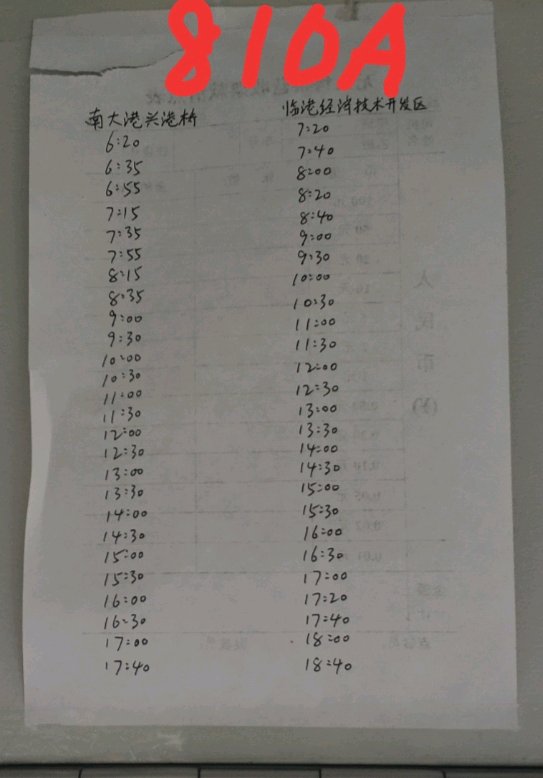 810A
南大港兴港桥 临港经济技术开发区
6:20 7:20
6:35 7:40
6:55 8:00
7:15 8:20
7:35 8:40
7:55 9:00
8:15 9:30
8:35 10:00
9:00 10:30
9:30 11:00
10:00 11:30
10:30 12:00
11:00 12:30
11:30 13:00
12:00 13:30
12:30 14:00
13:00 14:30
13:30 15:00
14:00 15:30
14:30 16:00
15:00 16:30
15:30 17:00
16:00 17:20
16:30 17:40
17:00 18:00
17:40 18:40